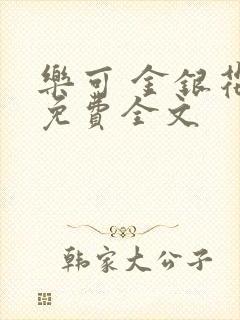 樂可 金銀花
免費全文
韩家大公子